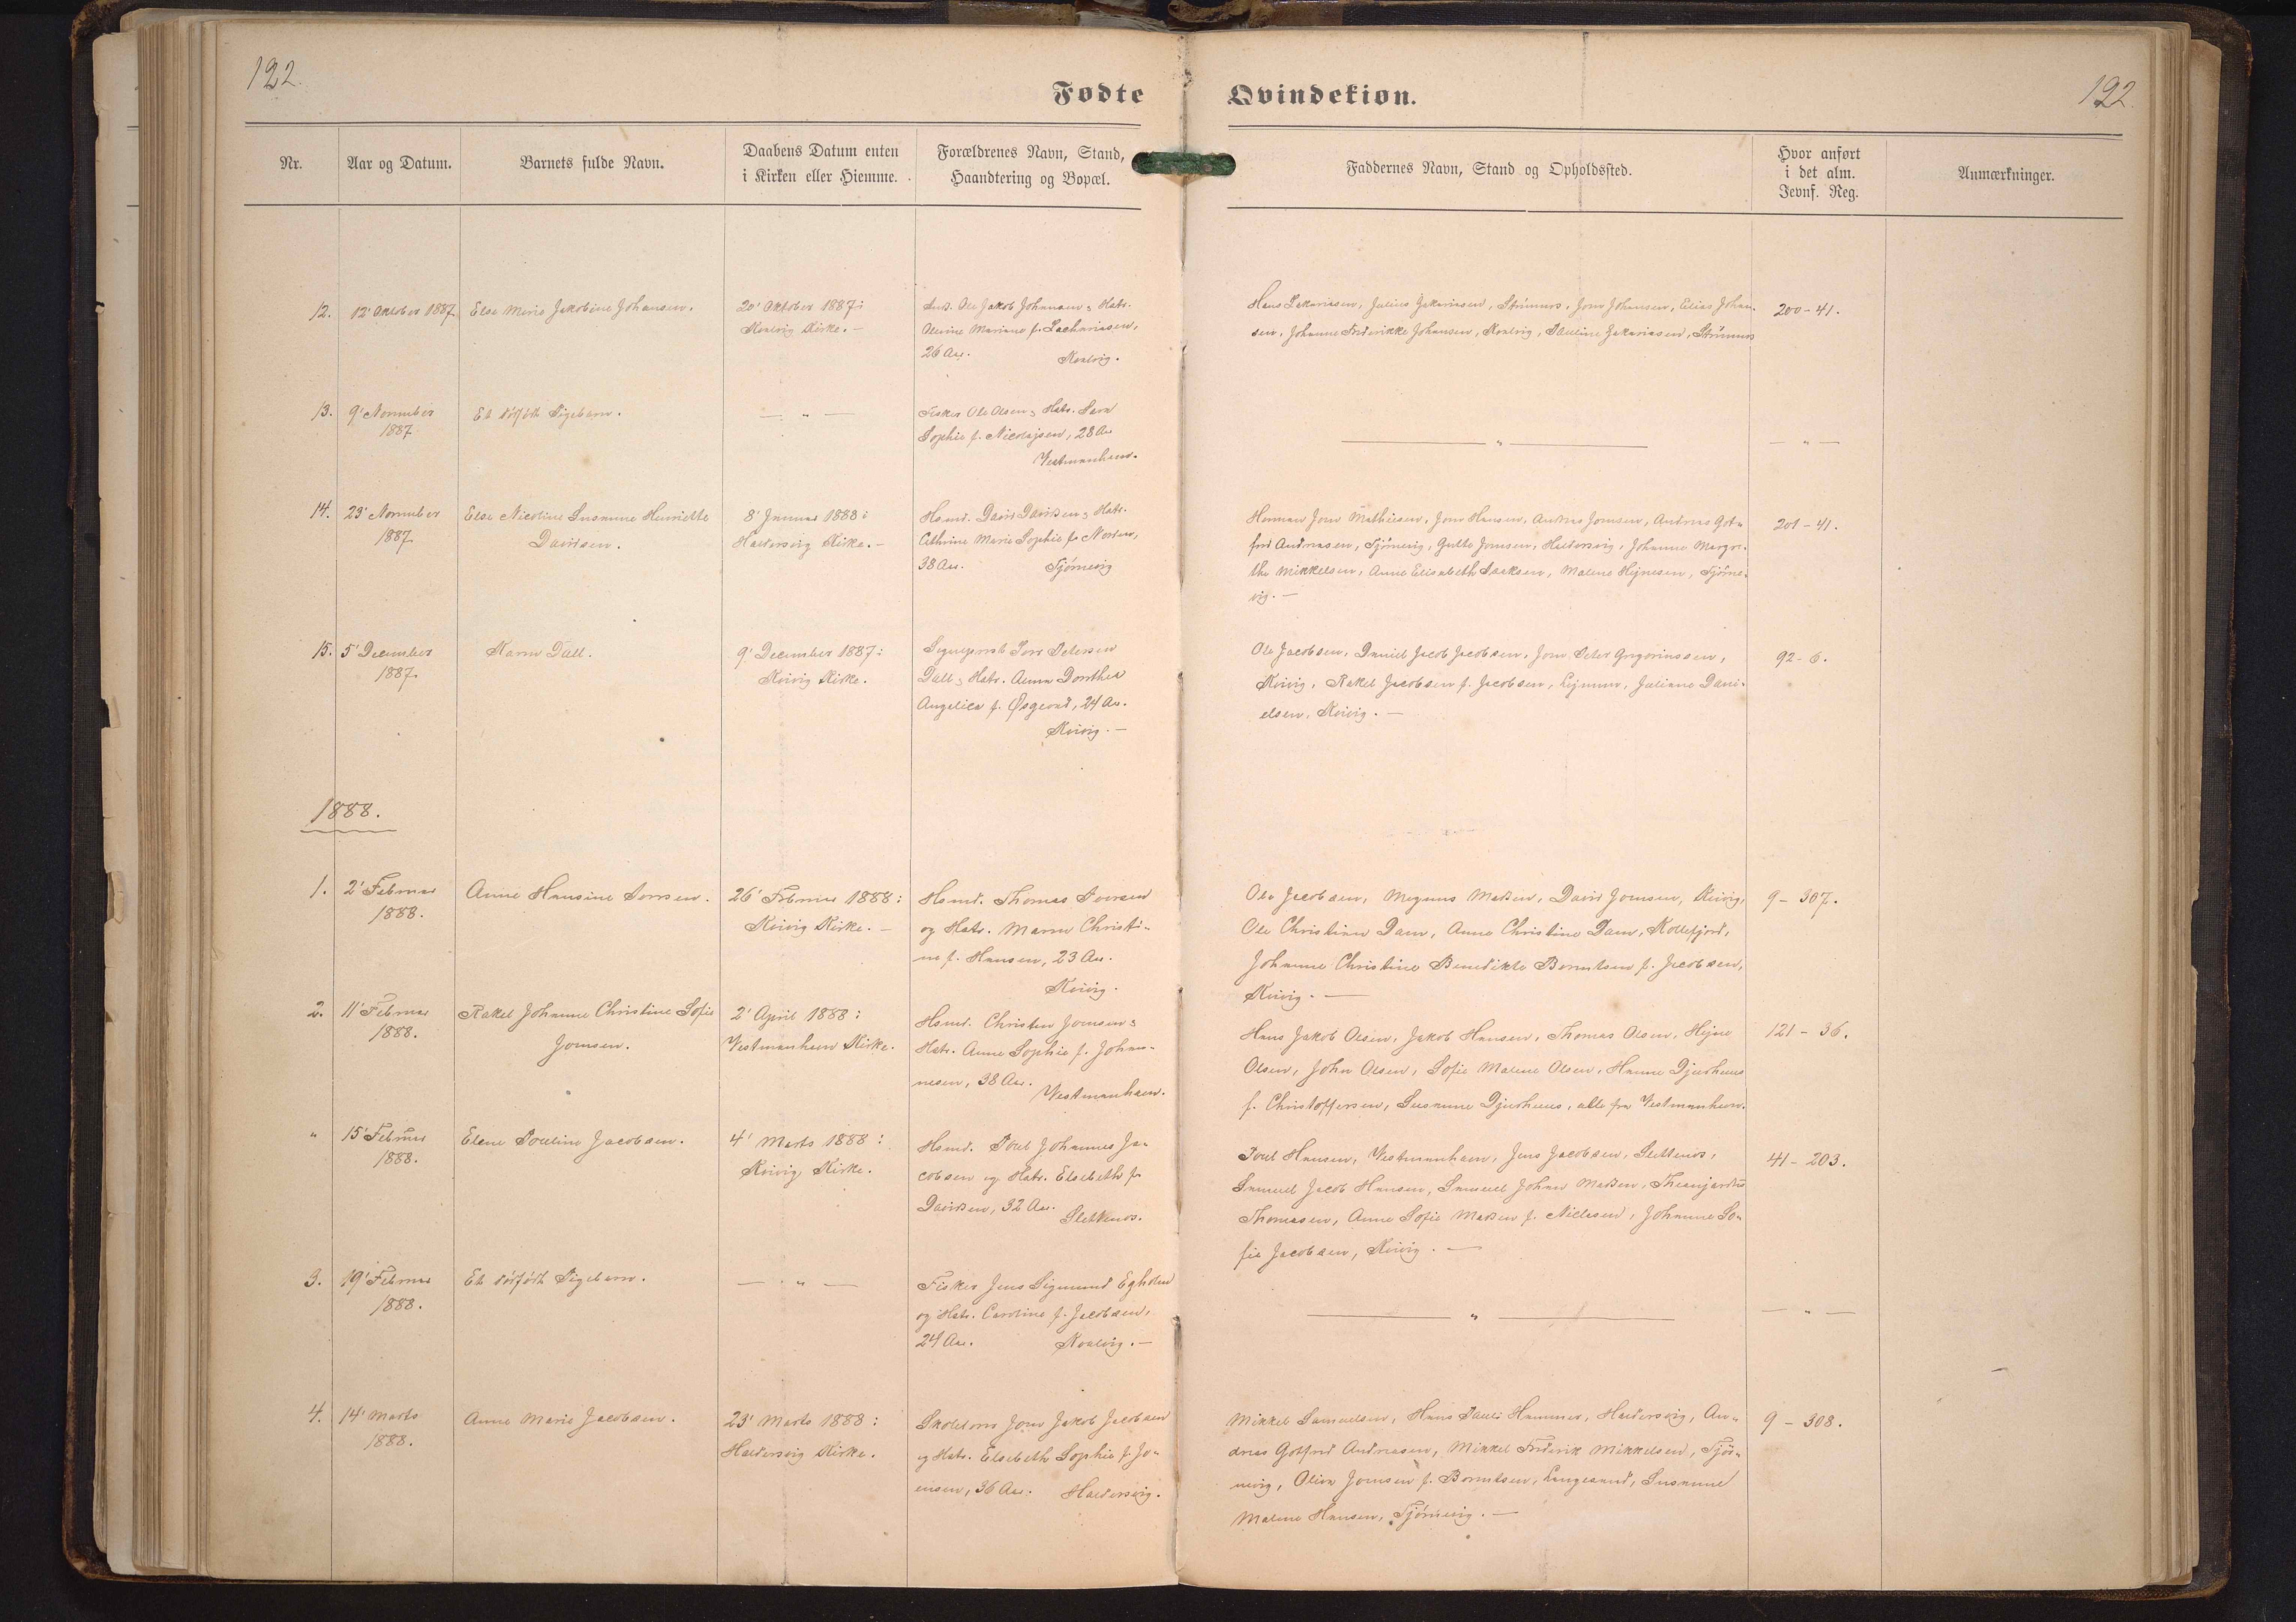 122.
122.
Fødte
Qvindekiøn.
Nr.
Aar og Datum.
Barnets fulde Navn.
Daabens Datum enten
i Kirken eller Hiemme.
Forældrenes Navn, Stand,
Haandtering og Bopæl.
Faddernes Navn, Stand og Opholdssted.
Hvor anført
i det alm.
Jevnf. Reg.
Anmærkninger.
12.
12' Oktober 1887
Else Marie Jakobine Johansen.
20' Oktober 1887:
Kvalvig Kirke. —
Ole Jakob Johansen & Hstr.
Mariane f. Zachariasen,
26 Aar.
Kvalvig.
Hans Zakariasen, Julius Zakariasen, Strømnæs, Jons Johansen, Elias Johan-
sen, Johanne Frederikke Johansen, Kvalvig, Pauline Zakariasen, Strømnæs
200-41.
13.
9' November
1887.
Et dødfødt Pigebarn.
— " —
Fisker Ole Olsen & Hstr. Sara
Sophie f. Nicolajsen, 28 Aar
Vestmanhavn.
— " —
— " —
14.
23' November
1887
Else Nicoline Susanne Henriette
Davidsen.
8' Januar 1888:
Haldersvig Kirke. —
Hsmd. David Davidsen & Hstr.
Cathrine Marie Sophie f.
38 Aar.
Tjørnevig
Herman Jons Mathiesen, Jons Hansen, Andreas Joensen, Andreas Got-
fred Andreasen, Tjørnevig, Gutte Joensen, Haldersvig, Johanne Margre-
the Mikkelsen, Anne Elisabeth Isaksen, Malene Hejnesen, Tjørne-
vig. —
201-41.
15.
5' December
1887.
Karen Dall.
9' December 1887:
Kvivig Kirke.
Sognepræst Jens Petersen
Dall & Hstr. Anna Dorthea
Angelica f. Øsgaard, 24 Aar.
Kvivig. —
Ole Jacobsen, Daniel Jacob Jacobsen, Jons Peter Gregoriussen,
Kvivig, Rakel Jacobsen f. Jacobsen, Lejnum, Juliane Dani-
elsen, Kvivig. —
92-6.
1888.
1.
2' Februar
1888.
Anne Hansine Poulsen.
26' Februar 1888:
Kvivig Kirke. —
Hsmd. Thomas Poulsen
og Hstr. Maren Christi-
ne f. Hansen, 23 Aar.
Kvivig.
Ole Jacobsen, Magnus Madsen, David Joensen, Kvivig,
Ole Christian Dam, Anne Christine Dam, Kollefjord,
Johanne Christine Benedikte Berntsen f. Jacobsen,
Kvivig. —
9-307.
2.
11' Februar
1888.
Rakel Johanne Christine Sofie
Joensen.
2' April 1888:
Vestmanhavn Kirke.
Hsmd. Christen Joensen &
Hstr. Anne Sophie f. Johan-
nesen, 38 Aar.
Vestmanhavn.
Hans Jakob Olsen, Jakob Hansen, Thomas Olsen, Hejne
Olsen, John Olsen, Sofie Malene Olsen, Hanne Djurhuus
f. Christoffersen, Susanne Djurhuus, alle fra Vestmanhavn.
121-36.
"
15' Februar
1888.
Elene Pouline Jacobsen.
4' Marts 1888:
Kvivig Kirke.
Hsmd. Poul Johannes Ja-
cobsen og Hstr. Elsebeth f.
Davidsen, 32 Aar.
Slettenæs.
Poul Hansen, Vestmanhavn, Jens Jacobsen, Slettenæs,
Samuel Jacob Hansen, Samuel Johan Madsen,
Thomasen, Anne Sofie Madsen f. Nielsen, Johanne So-
fie Jacobsen, Kvivig. —
41-203.
3.
19' Februar
1888.
Et dødfødt Pigebarn.
— " —
Fisker Jens Sigmund Egholm
og Hstr. Caroline f. Jacobsen,
24 Aar.
Kvalvig. —
— " —
— " —
4.
14' Marts
1888.
Anne Marie Jacobsen.
23' Marts 1888:
Haldersvig Kirke.
Skolelærer Jons Jakob Jacobsen
og Hstr. Elsebeth Sophie f. Jo-
ensen, 36 Aar:
Haldersvig.
Mikkel Samuelsen, Hans Pauli Hammer, Haldersvig, An-
dreas Gotfred Andreasen, Mikkel Frederik Mikkelsen, Tjør-
nevig, Olivia Joensen f. Berntsen, Langesand, Susanne
Malene Hansen, Tjørnevig. —
9-308.